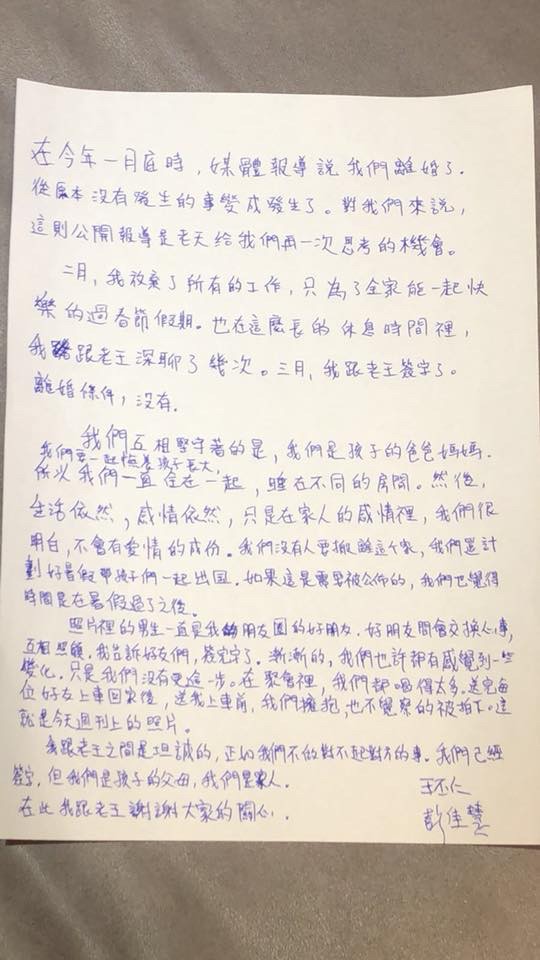 在今年一月底時，媒體報導說我們離婚了．
從原本沒有發生的事變成發生了。對我們來說，
這則公開報導是老天給我們再一次思考的機會。
二月，我放棄了所有的工作，只為了全家能一起快
樂的過春節假期。也在這麼長的休息時間裡，
我跟老王深聊了幾次。三月，我跟老王簽字了。
離婚條件，沒有．
我們互相堅守著的是，我們是孩子的爸爸媽媽．
我們要一起陪著孩子長大，
所以我們一直住在一起，睡在不同的房間。然後，
生活依然，感情依然，只是在家人的感情裡，我們很
明白，不會有愛情的成份。我們沒有人要搬離這個家，我們還計
劃好暑假帶孩子們一起出国．如果這是需要被公佈的，我們也覺得
時間是在暑假過了之後。
照片裡的男生一直是我朋友圈的好朋友．好朋友間會交換心事，
互相照顧．我告訴好友們，簽完字了．漸漸的，我們也許都有感覺到一些
變化．只是我們沒有更進一步。在聚會裡，我們都喝得太多．送完每
位好友上車回家後，送我上車前，我們擁抱，也不覺察的被拍下．這
就是今天週刊上的照片．
我跟老王之間是坦誠的，正如我們不做對不起對方的事．我們已經
簽字，但我們是孩子的父母，我們是家人．
在此我跟老王謝謝大家的關心．
王丕仁
彭佳慧